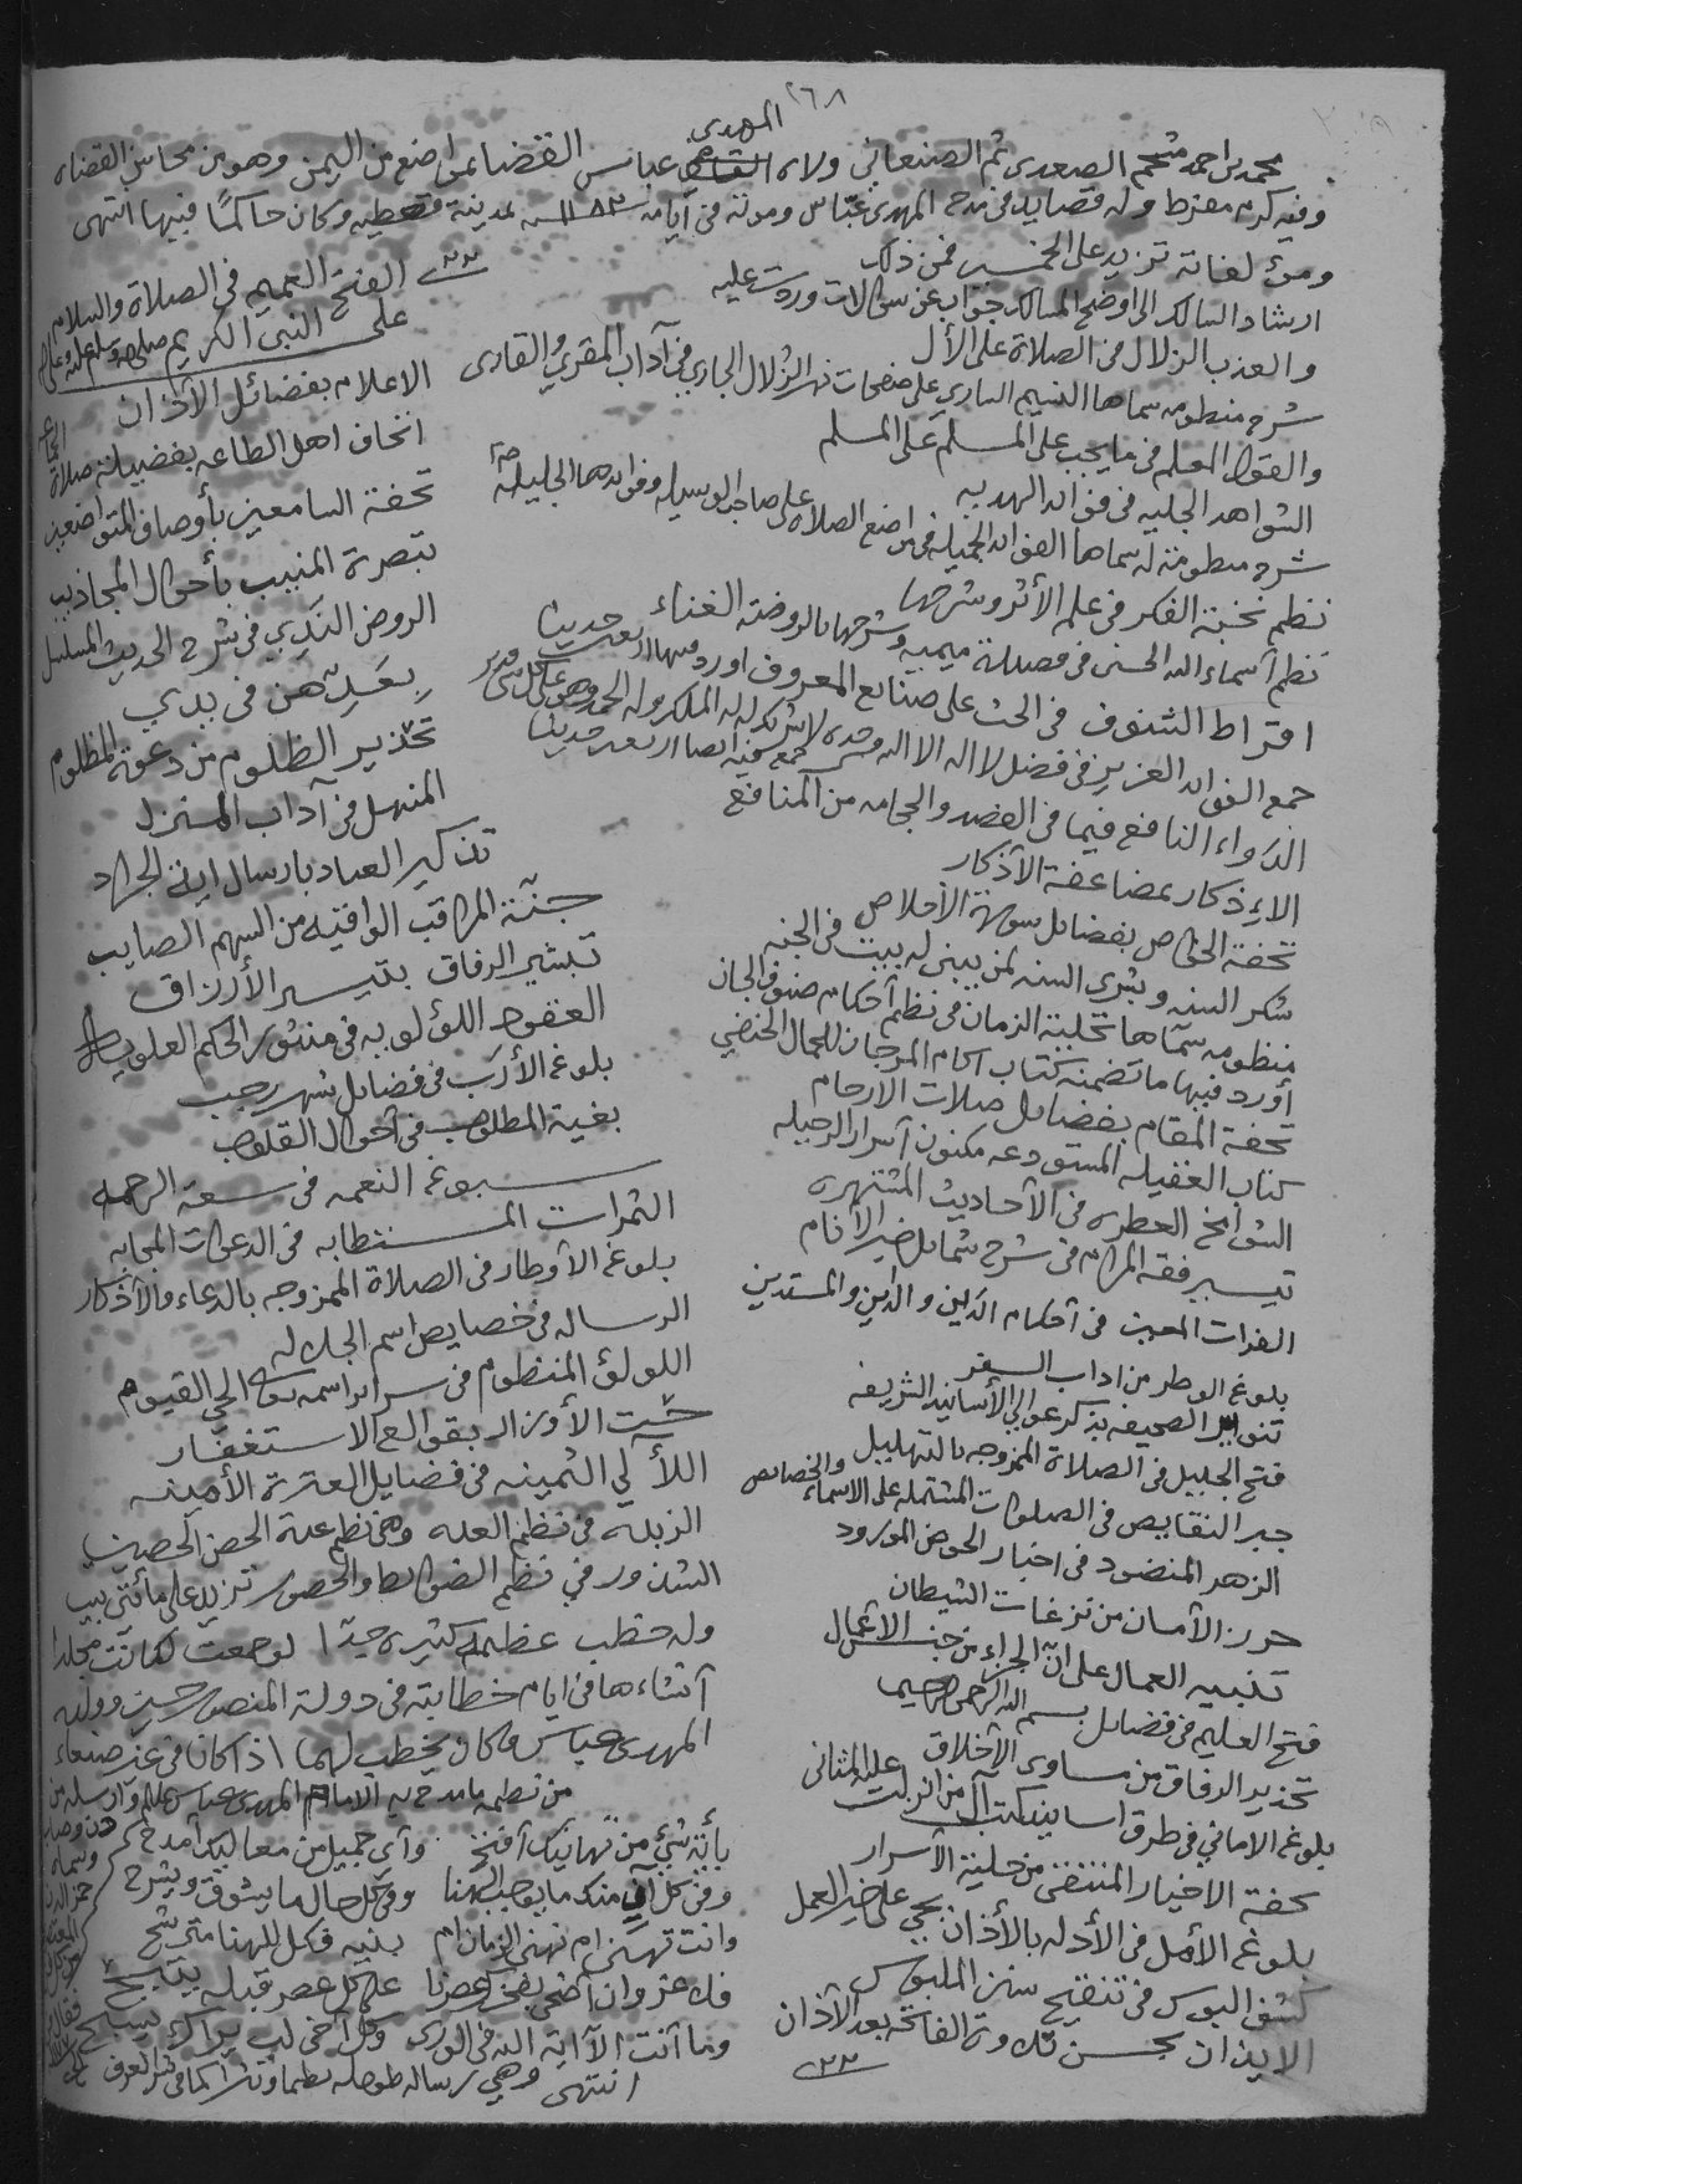 ٢٦٨
محمد بن احمد مشحم الصعدي ثم الصنعاني ولاه المهدي عباس القضا بمواضع من اليمن وهو من محاسن القضاه
وفيه كرم مفرط وله قصايد في مدح المهدي عباس وموته في ايامه سنة ١١٨٢ بمدينة وكان حاكمًا فيها انتهى
ومؤلفاته تزيد على الخمسين فمن ذلك
ارشاد السالك الى اوضح المسالك جواب عن سؤالات وردت عليه
والعذب الزلال في الصلاة على الأل
شرح منظومه سماها النسيم الساري على صفحات نهر الزلال الجاري في آداب المقري والقاري
والقول المعلم في ما يجب على المسلم على المسلم
الشواهد الجليه في فوائد الهديه
شرح منظومته له سماها الفوائد الجميله في مواضع الصلاه على صاحب الوسيله وفوائدها الجليله
نظم نخبة الفكر في علم الأثر وشرحها
نظم أسماء الله الحسنى في قصيدة ميميه وشرحها بالروضة الغناء
اقراط الشنوف في الحث على صنايع المعروف اورد فيها اربعين حديثا
جمع الفوائد العزيز في فضل لا اله الا الله وحده لا شريك له له الملك وله الحمد وهو على كل شي قدير جمع فيه ايضا اربعين حديثا
الدواء النافع فيما في الفصد والحجامه من المنافع
الاذكار بمضاعفة الأذكار
تحفة الخواص بفضايل سورة الأخلاص
شكر المنه وبشرى السنه لمن يبنى له بيت في الجنه
منظومه سماها تحلية الزمان في نظم أحكام صنوف الجان
أورد فيها ما تضمنه كتاب اكام المرجان للجمال الحنفي
تحفة المقام بفضايل صلات الارحام
كتاب الفضيله المستودعه مكنون أسرار
النوافح العطره في الأحاديث المشتهره
تيسير فقه المرام في شرح شمايل خير الأنام
الفرات المعين في أحكام الدَين والداين والمستدين
بلوغ الوطر من اداب السفر
تنوير الصحيفه بذكر عوالي الأسانيد الشريفه
فتح الجليل في الصلاة الممزوجه بالتهليل
جبر النقايص في الصلوات المشتمله على الاسماء والخصايص
الزهر المنضود في اخبار الحوض المورود
حرز الأمان من نزغات الشيطان
تنبيه العمال على ان الجزاء من جنس الأعمال
فتح العليم في فضايل بسم الله الرحمن الرحيم
تحذير الرفاق من مساوى الأخلاق
بلوغ الاماني في طرق اسانيد كتب آل من انزلت عليه المثاني
تحفة الاخيار المنتقى من حلية الأسرار
بلوغ الأمل في الأدله بالأذان بحي على خير العمل
كشف البوس في تنقيح سنن الملبوس
الايذان بحسن تلاوة الفاتحه بعد الآذان
الفتح العميم في الصلاة والسلام
على النبي الكريم صلى الله وسلم عليه وعلى اله
الاعلام بفضائل الآذان
اتحاف اهل الطاعه بفضيلة صلاة الجماعه
تحفة السامعين بأوصاف المتواضعين
تبصرة المنيب بأحوال المجاذيب
الروض الندي في شرح الحديث المسلسل
بعدهن في يدي
تحذير الظلوم من دعوة المظلوم
المنهل في آداب المنزل
تذكير العباد بارسال اية الجراد
جنة المراقب الواقيه من السهم الصايب
تبشير الرفاق بتيسير الأرزاق
العقود اللؤلويه في منثور الحكم العلويه
بلوغ الأرب في فضايل شهر رجب
بغية المطلوب في أحوال القلوب
سبوغ النعمه في سعة الرحمه
الثمرات المستطابه في الدعوات المجابه
بلوغ الأوطار في الصلاة الممزوجه بالدعاء والأذكار
الرساله في خصايص اسم الجلاله
اللولؤ المنظوم في اسرار اسمه تعالى الحي القيوم
حت الأوزار بقوالع الاستغفار
اللألي الثمينه في فضايل العترة الأمينه
الزبده في نظم العده وهي نظم عدة الحصن الحصين
الشذور في نظم الضوابط والحصور تزيد على مأتي بيت
وله خطب عظيمة كثيره جدًا لو جمعت لكانت مجلدا
أنشاءها في ايام خطابته في دولة المنصور حسين وولده
المهدي عباس وكان يخطب لهما اذا كانا في غير صنعاء
من نظمه مامدح به الامام المهدي عباس
بأية شيء من تهانيك أفتتح وأي جميل من معاليك أمدح
وفي كل آن منك ما يوجب الهنا وفي كل حال ما يشوق ويشرح
وانت تهنى ام نهنى الزمان ام بنيه فكل للهنا مترشح
فلا غرو ان أضحى بفخرك عصرنا على كل عصر قبله يتبجح
وما أنت الا آية الله في الورى وكل أخي لب يراك يسبح
انتهى وهي رساله طويله نظما ونثرا كما في نشر العرف